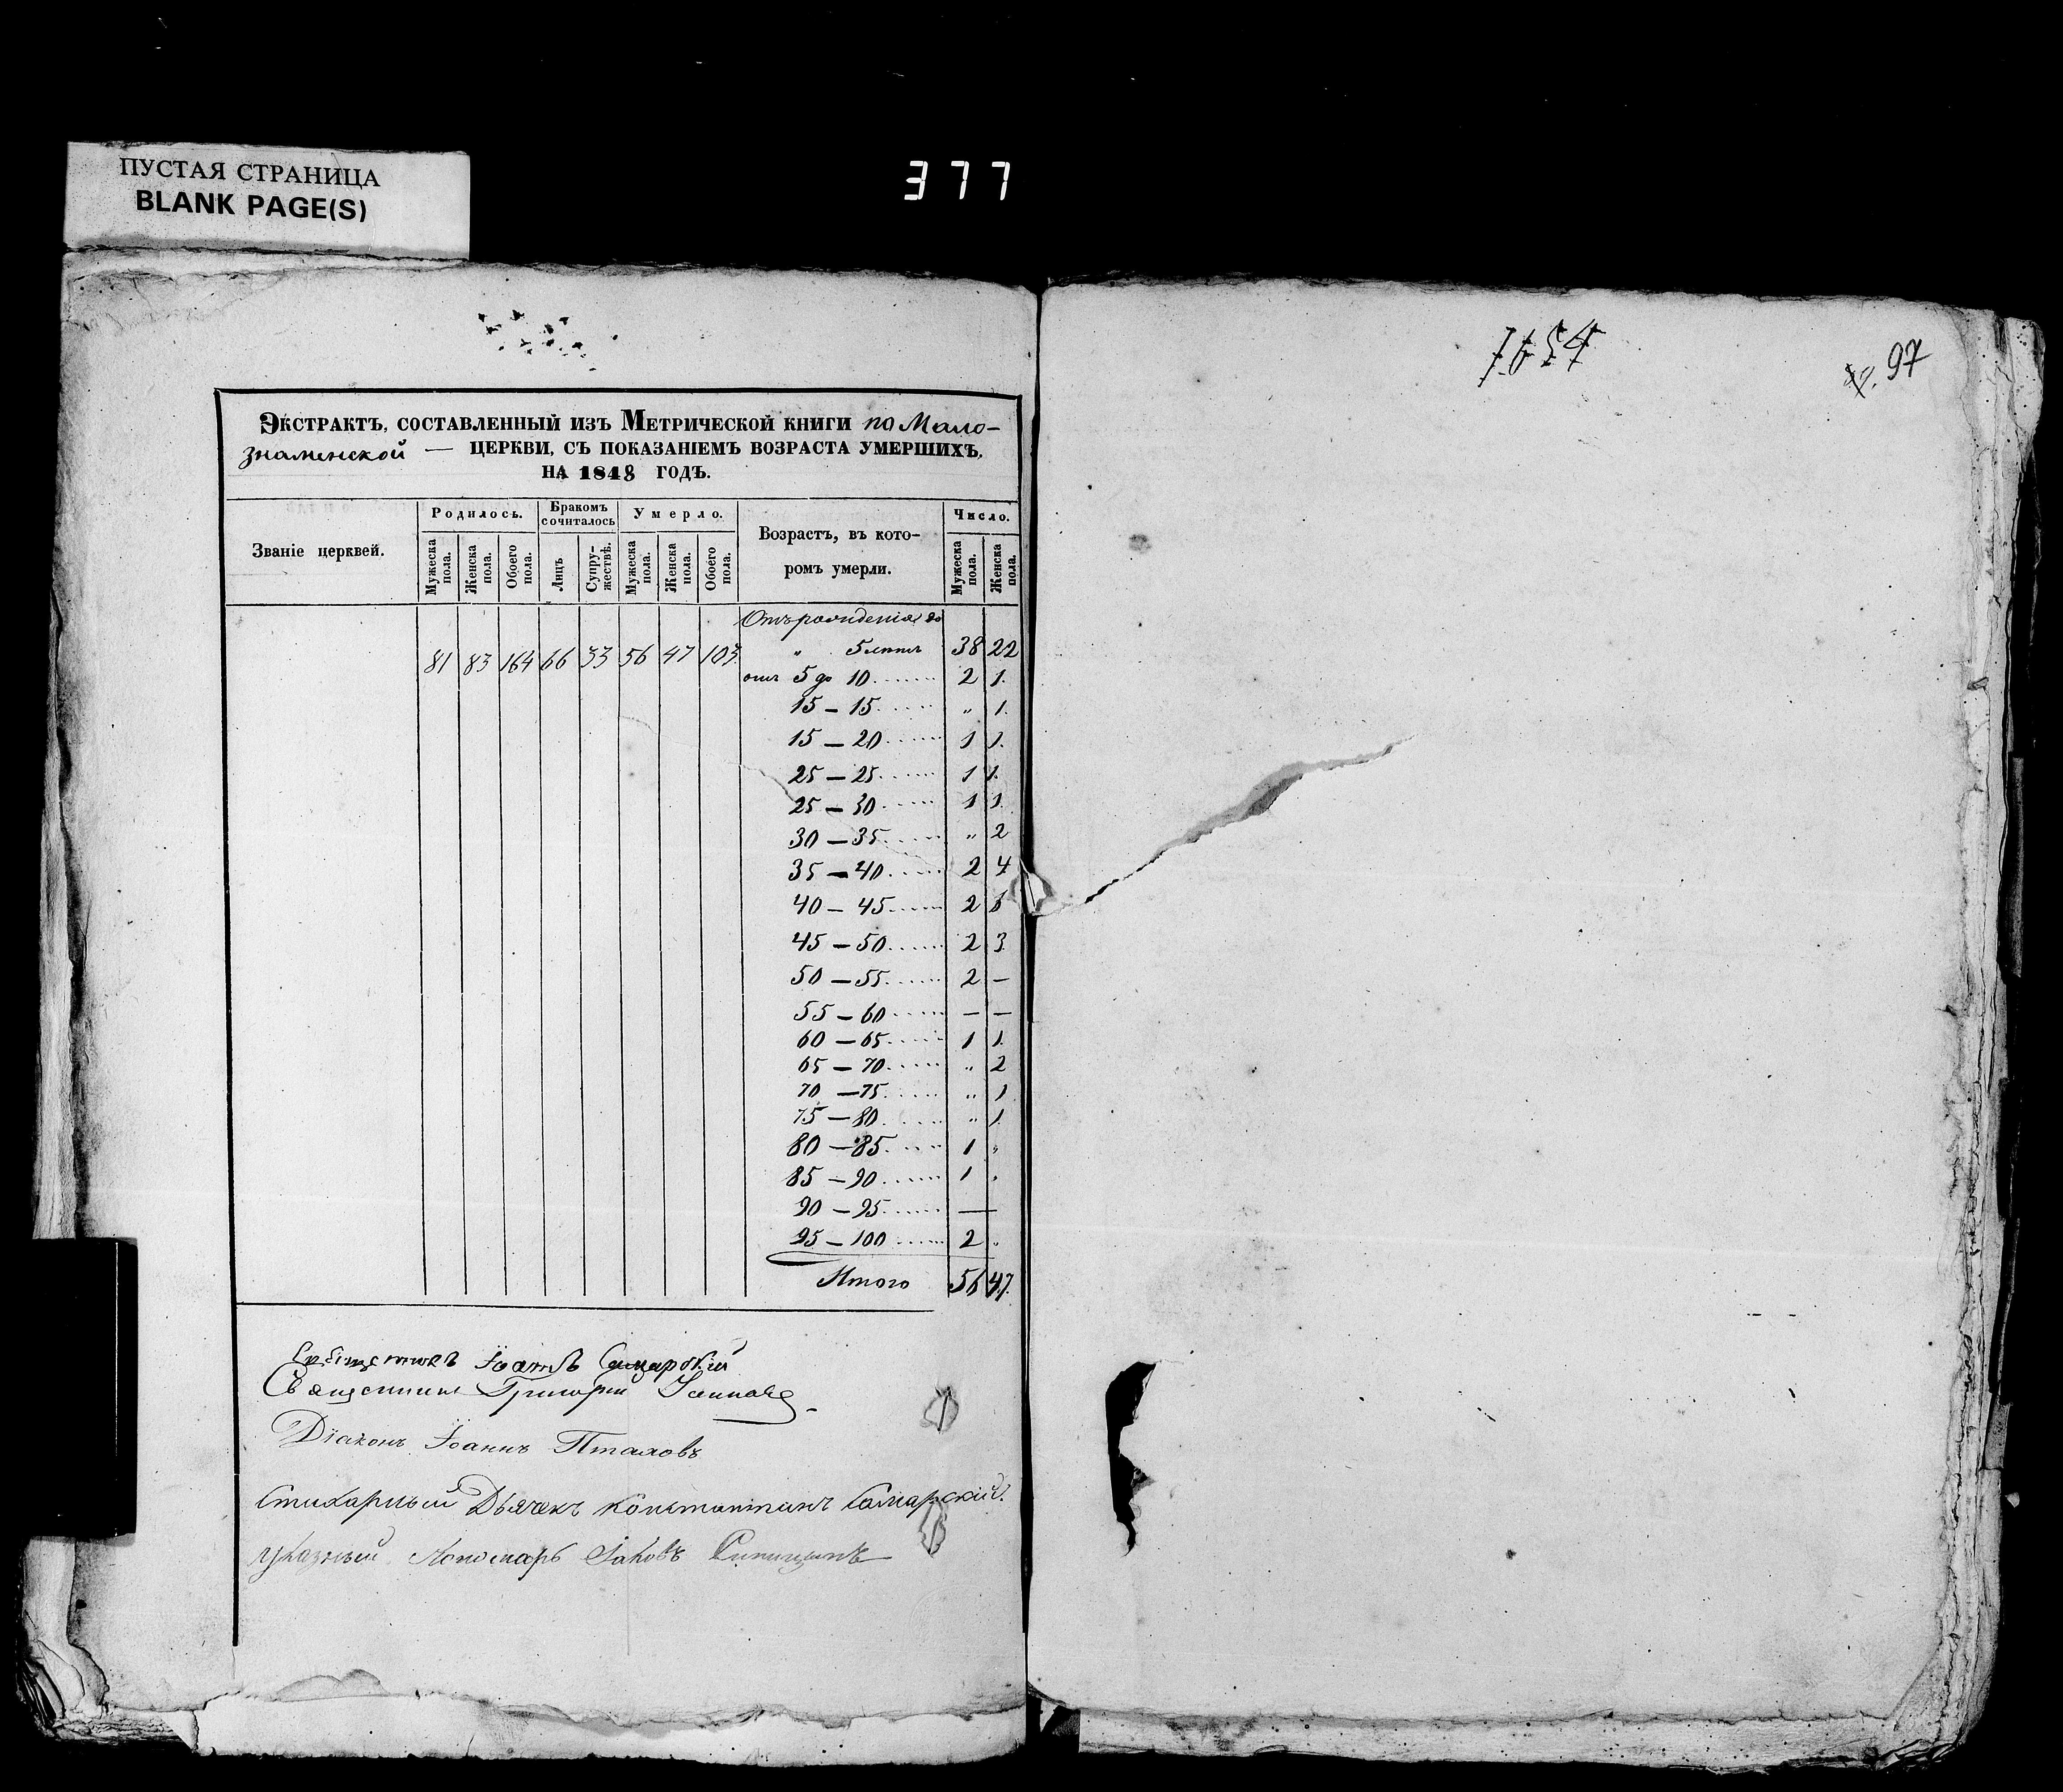 ПУСТАЯ СТРАНИЦА
BLANK PAGE(S)
377
Экстрактъ, составленный изъ Метрической книги по Мало-
знаменской — церкви, съ показаніемъ возраста умершихъ,
на 1848 годъ.
Званіе церквей.
Родилось.
Бракомъ сочиталось
Умерло.
Возрастъ, въ кото-
ромъ умерли.
Число.
Мужеска пола.
Женска пола.
Обоего пола.
Лицъ
Супру-жествъ.
Мужеска пола.
Женска пола.
Обоего пола.
Мужеска пола.
Женска пола.
Отъ рожденія до
81 83 164 66 33 56 47 103 „ 5 лѣтъ 38 22
отъ 5 до 10 2 1.
15 – 15 „ 1.
15 – 20 1 1.
25 – 25 1 1.
25 – 30 1 1.
30 – 35 „ 2
35 – 40 2 4
40 – 45 2 6
45 – 50 2 3
50 – 55 2 –
55 – 60 – –
60 – 65 1 1.
65 – 70 „ 2
70 – 75 „ 1
75 – 80 „ 1.
80 – 85 1 „
85 – 90 1 „
90 – 95 —
95 – 100 2 „
Итого 56 47.
Священникъ Іоаннъ Самарскій
Священникъ Григорій
Діаконъ Іоаннъ Пталовъ
Стихарный Дьячекъ Константинъ Самарскій.
Указный Пономарь Іаковъ Синицынъ
7654
97